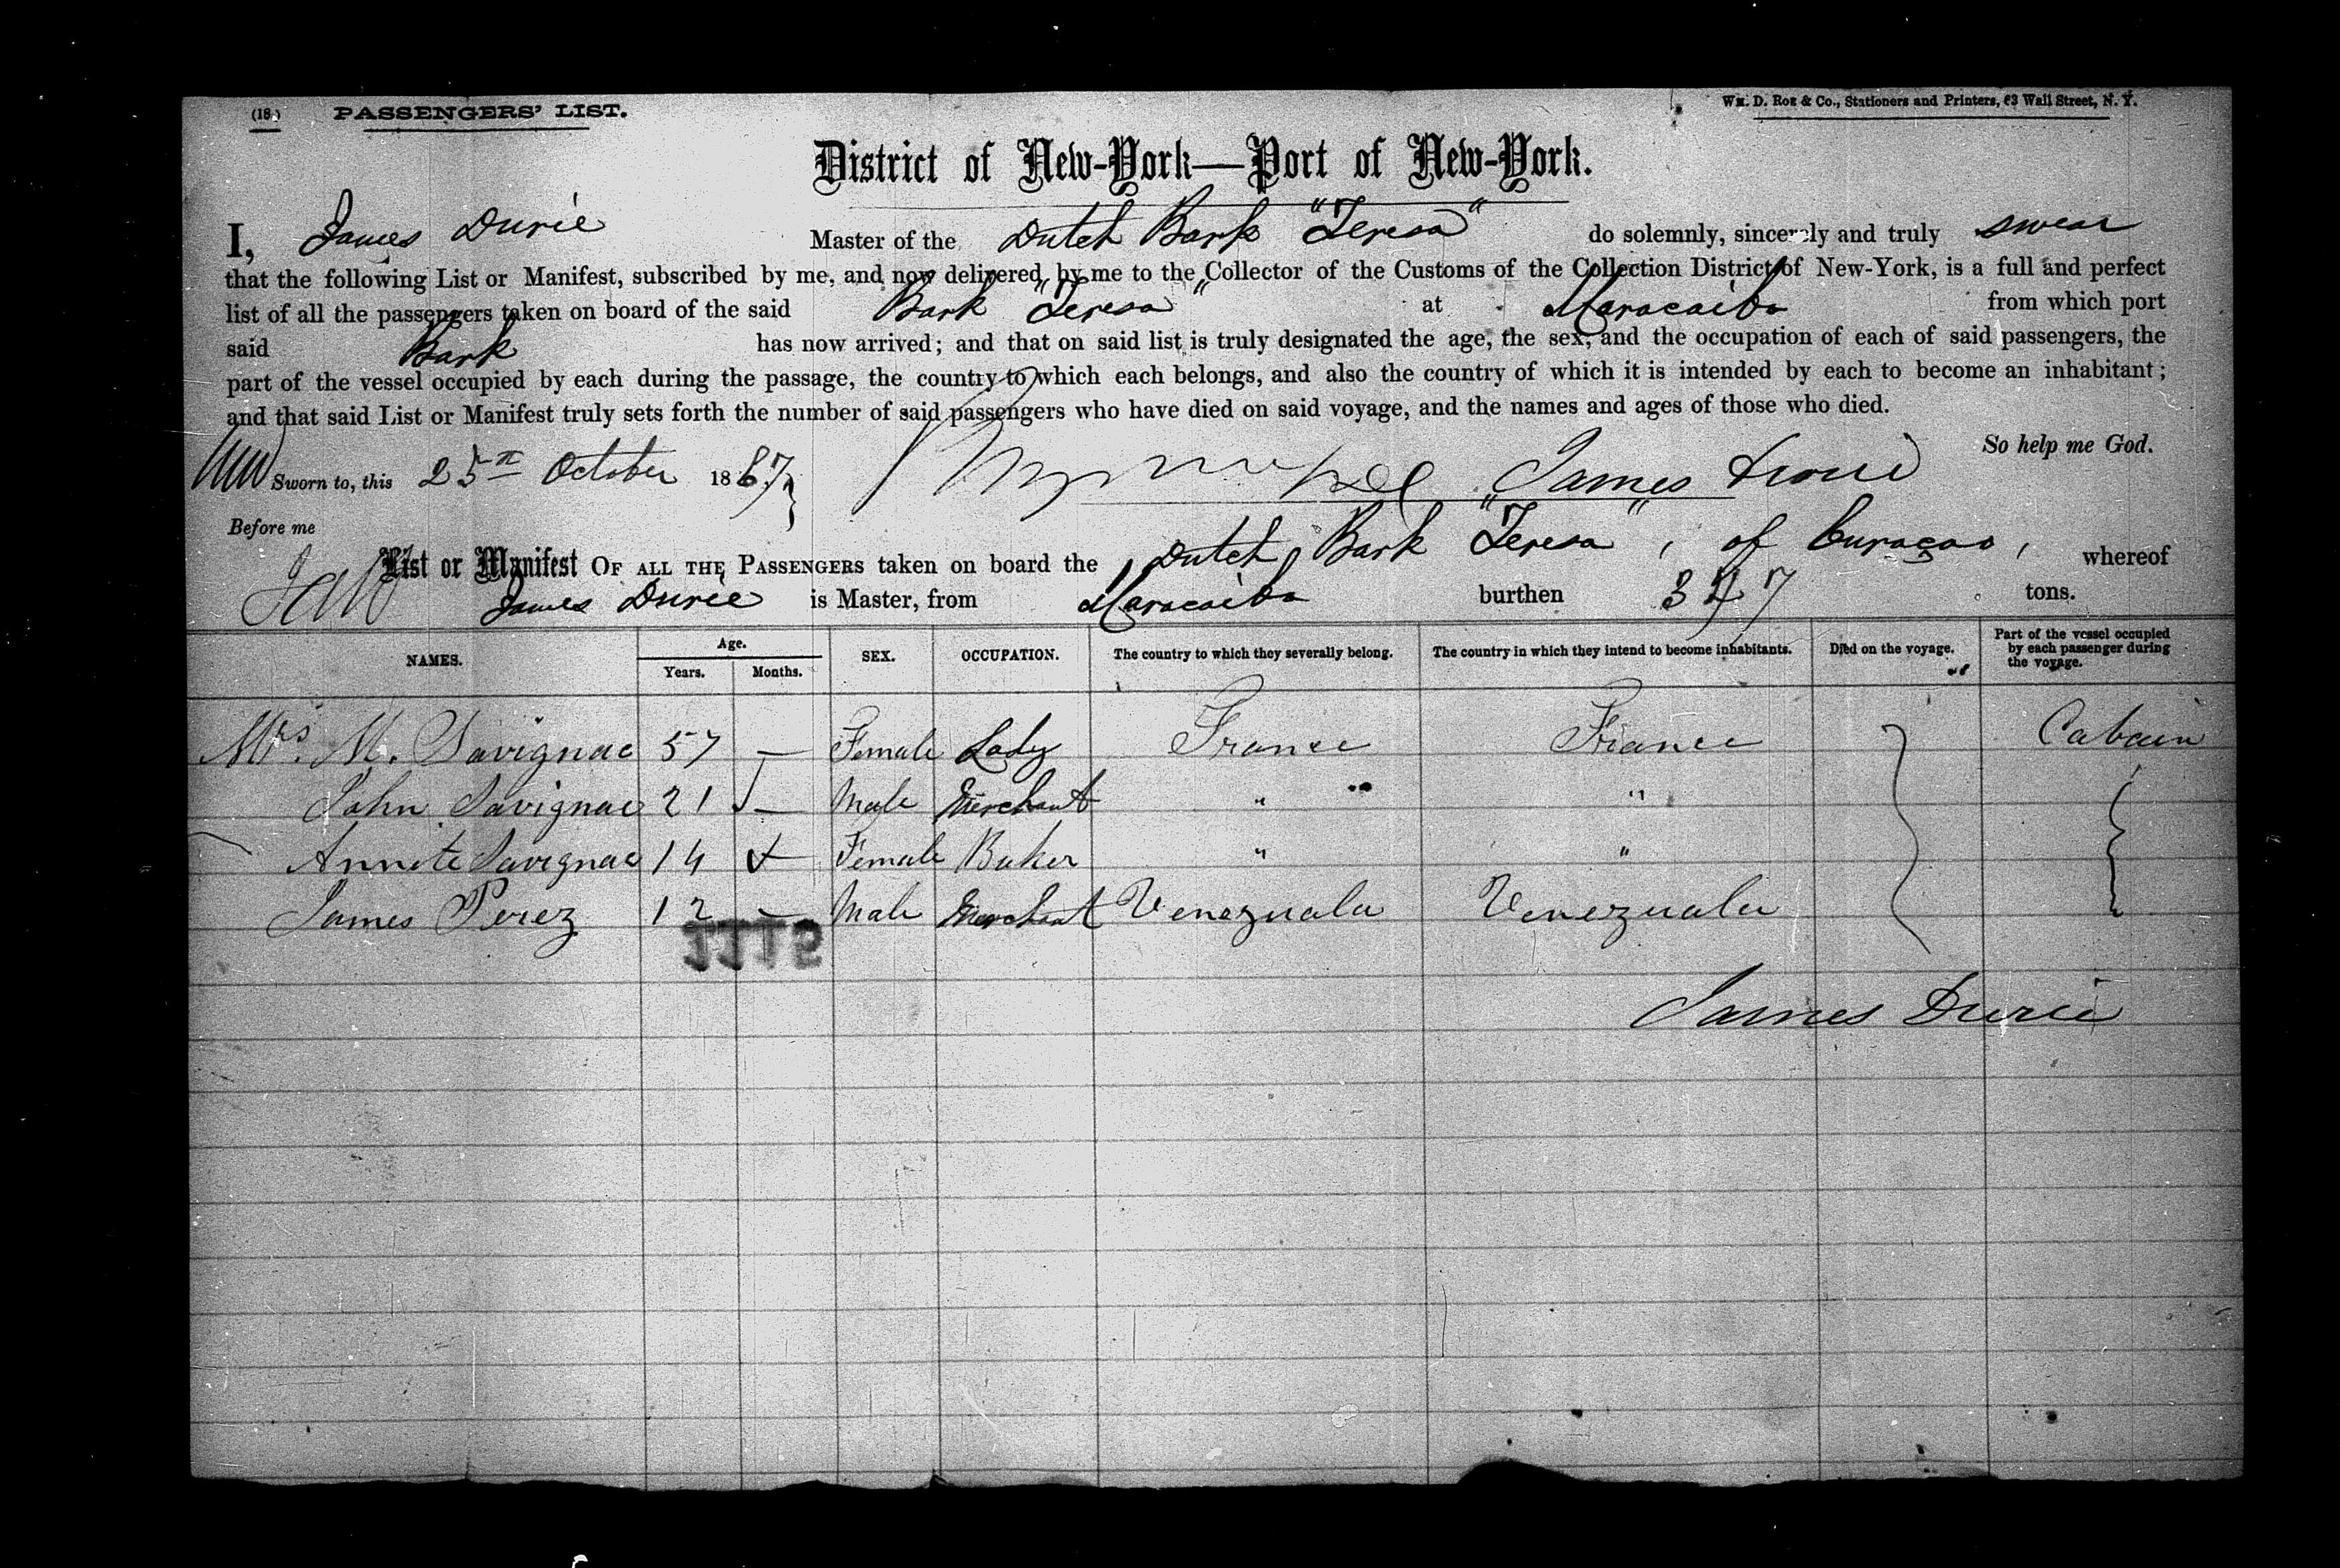 (18) PASSENGERS' LIST.
Wm. D. Roe & Co., Stationers and Printers, 63 Wall Street, N. Y.
District of New-York—Port of New-York.
I, James Durie Master of the Dutch Bark "Teresa" do solemnly, sincerely and truly swear
that the following List or Manifest, subscribed by me, and now delivered by me to the Collector of the Customs of the Collection District of New-York, is a full and perfect
list of all the passengers taken on board of the said Bark "Teresa" at Maracaibo from which port
said Bark has now arrived; and that on said list is truly designated the age, the sex, and the occupation of each of said passengers, the
part of the vessel occupied by each during the passage, the country to which each belongs, and also the country of which it is intended by each to become an inhabitant;
and that said List or Manifest truly sets forth the number of said passengers who have died on said voyage, and the names and ages of those who died.
So help me God.
Sworn to, this 25th October 1867 James Durie
Before me
List or Manifest OF ALL THE PASSENGERS taken on board the Dutch Bark "Teresa", of Curaçao, whereof
James Durie is Master, from Maracaibo burthen 347 tons.
NAMES. Age. Years. Months. SEX. OCCUPATION. The country to which they severally belong. The country in which they intend to become inhabitants. Died on the voyage. Part of the vessel occupied by each passenger during the voyage.
Mrs. M. Savignac 57 — Female Lady France France Cabain
John Savignac 21 — Male Merchant " " "
Annete Savignac 14 Female Baker " "
James Perez 12 — Male Merchant Venezuala Venezuala
James Durie